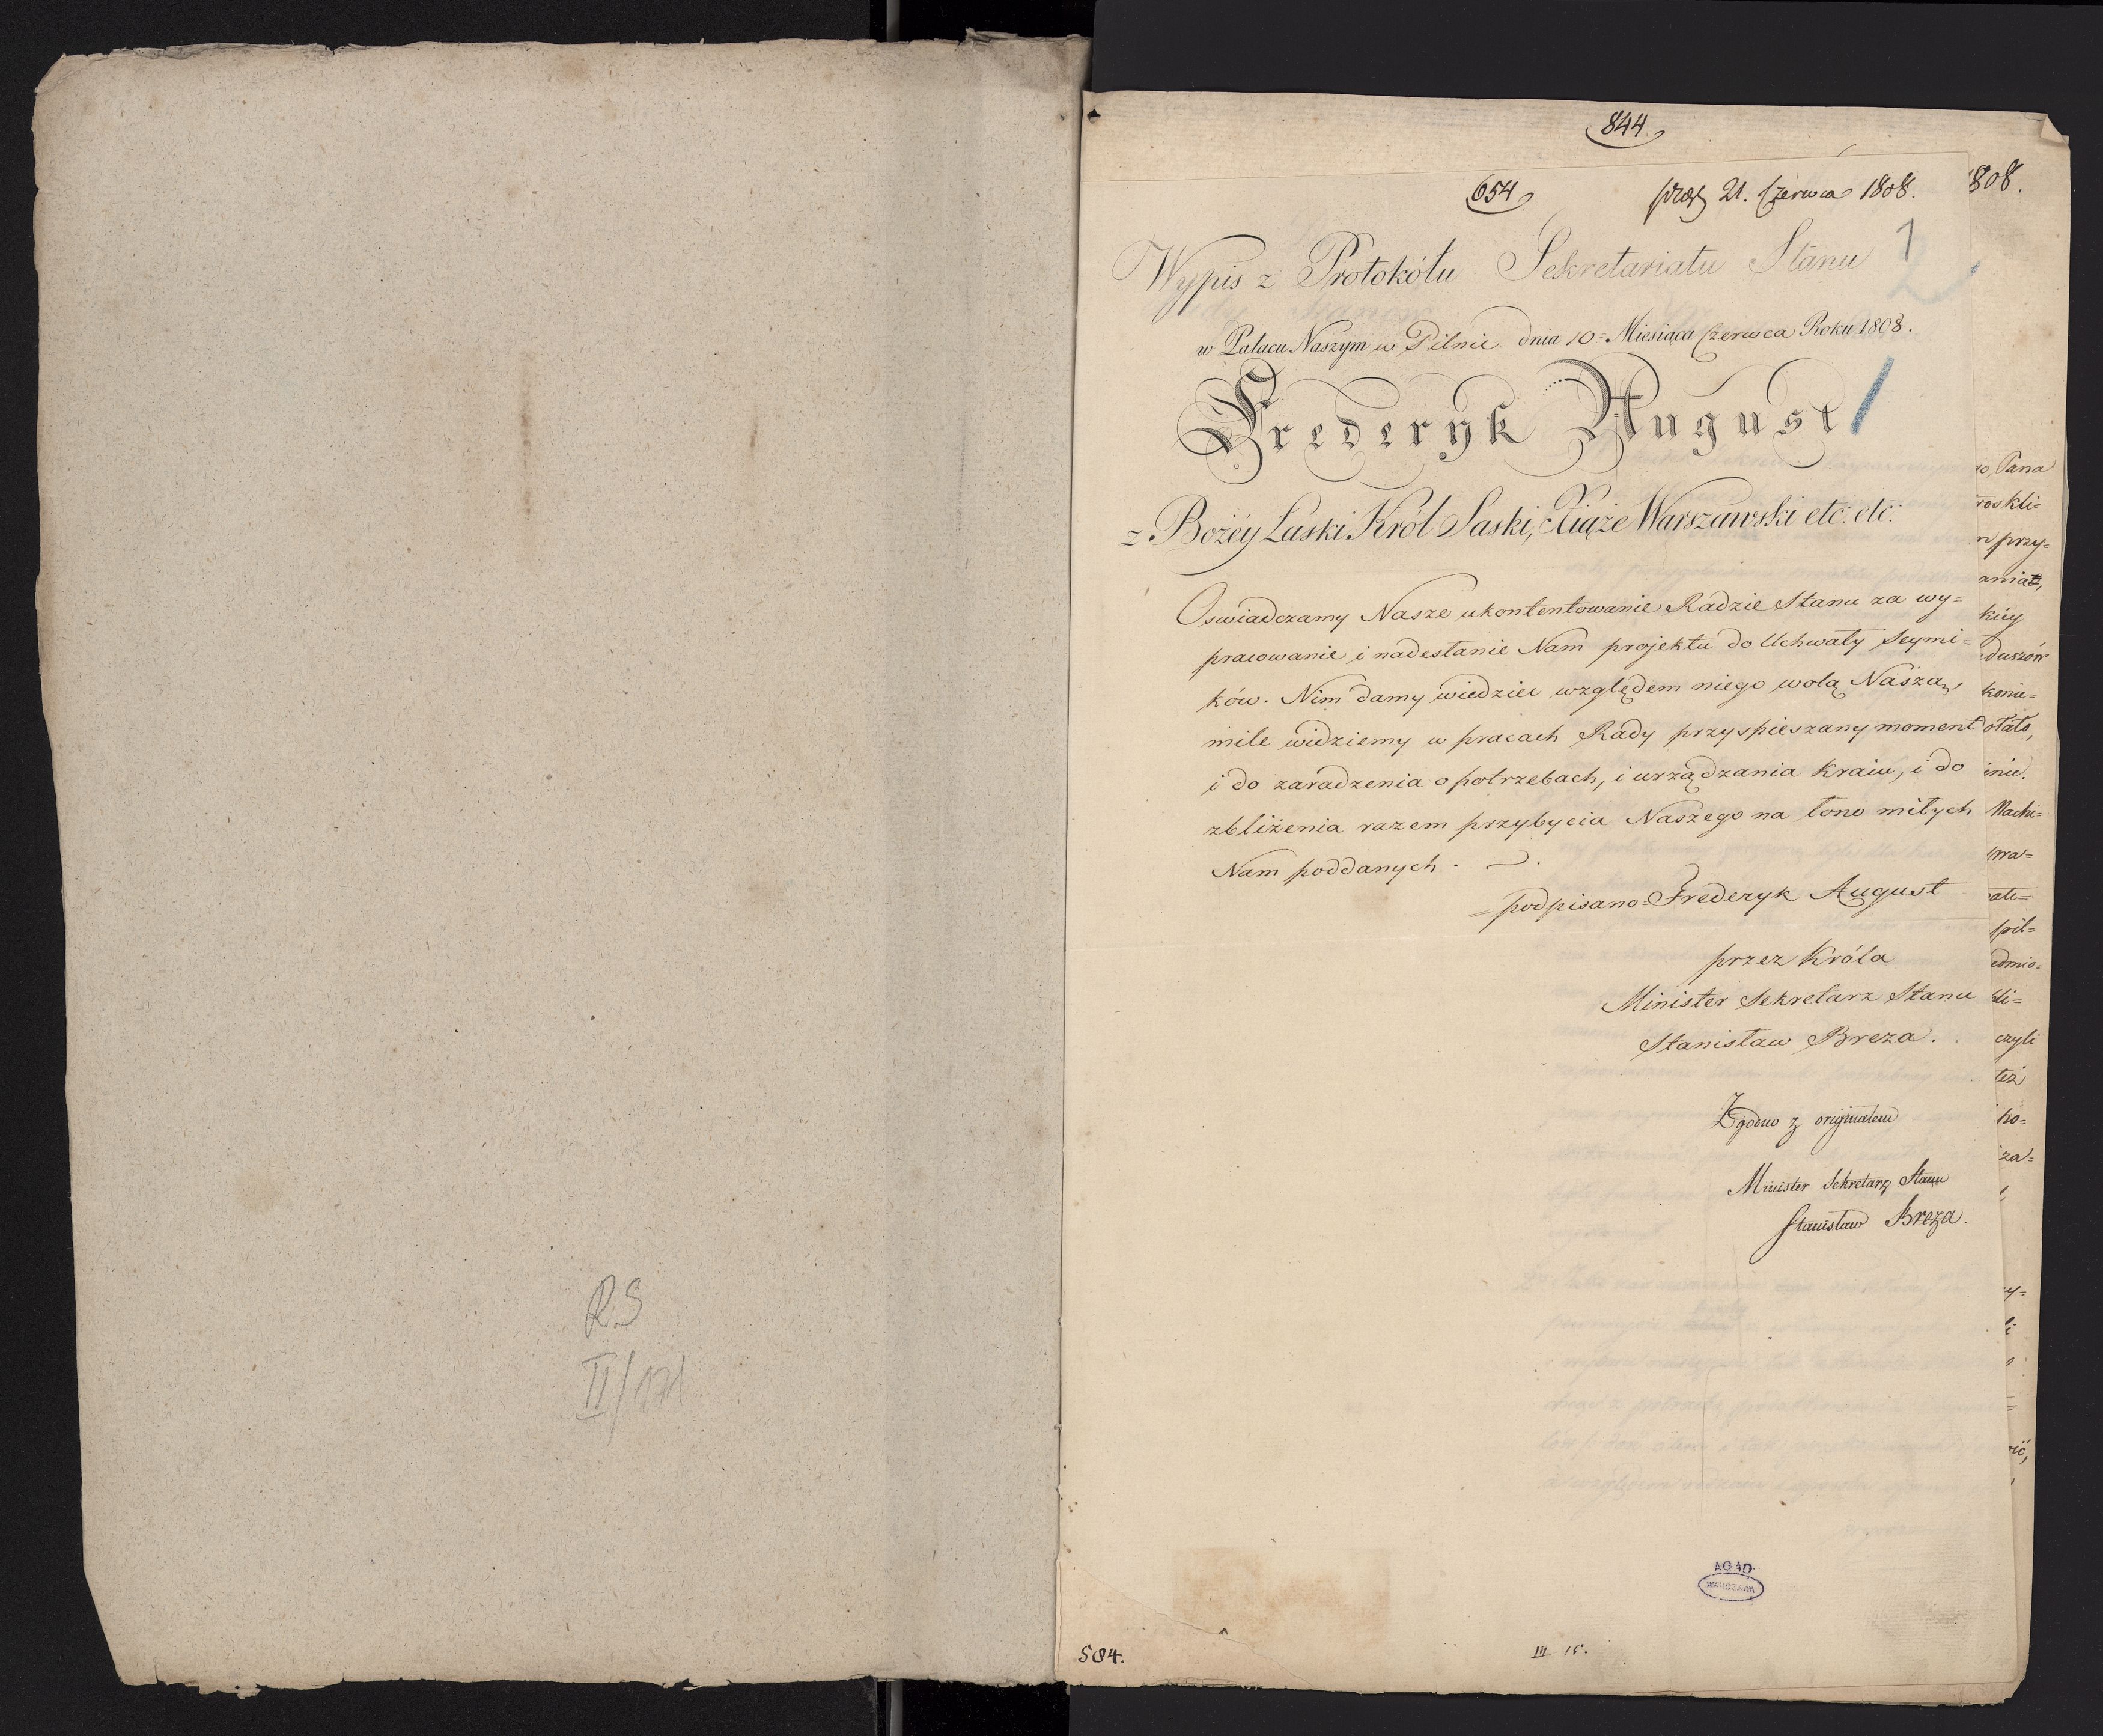 RS
II/171
844
654
prez 21. Czerwca 1808.
808.
1
Wypis z Protokółu Sekretariatu Stanu
w Pałacu Naszym w Pilnic dnia 10= Miesiąca Czerwca Roku 1808.
Frederyk August
z Bożéy Łaski Król Saski, Xiąże Warszawski etc: etc:
Oswiadczamy Nasze ukontentowanie Radzie Stanu za wy=
pracowanie i nadesłanie Nam projektu do Uchwały Seymi=
ków. Nim damy wiedzieć względem niego wolą Naszą,
mile widziemy w pracach Rady przyspieszany moment
i do zaradzenia o potrzebach, i urządzania kraiu, i do
zbliżenia razem przybycia Naszego na łono miłych
Nam poddanych.
=podpisano=Frederyk August
przez Króla
Minister Sekretarz Stanu
Stanisław Breza.
Zgodno z originałem
Minister Sekretarz Stanu
Stanisław Breza.
o Pana
roskli=
przy=
ania,
kiey
duszów
koniu=
otało,
inie.
Nachi=
ate=
spil=
edmio=
czyli
też
po=
za=
AGAD
WARSZAWA
504.
III 15.